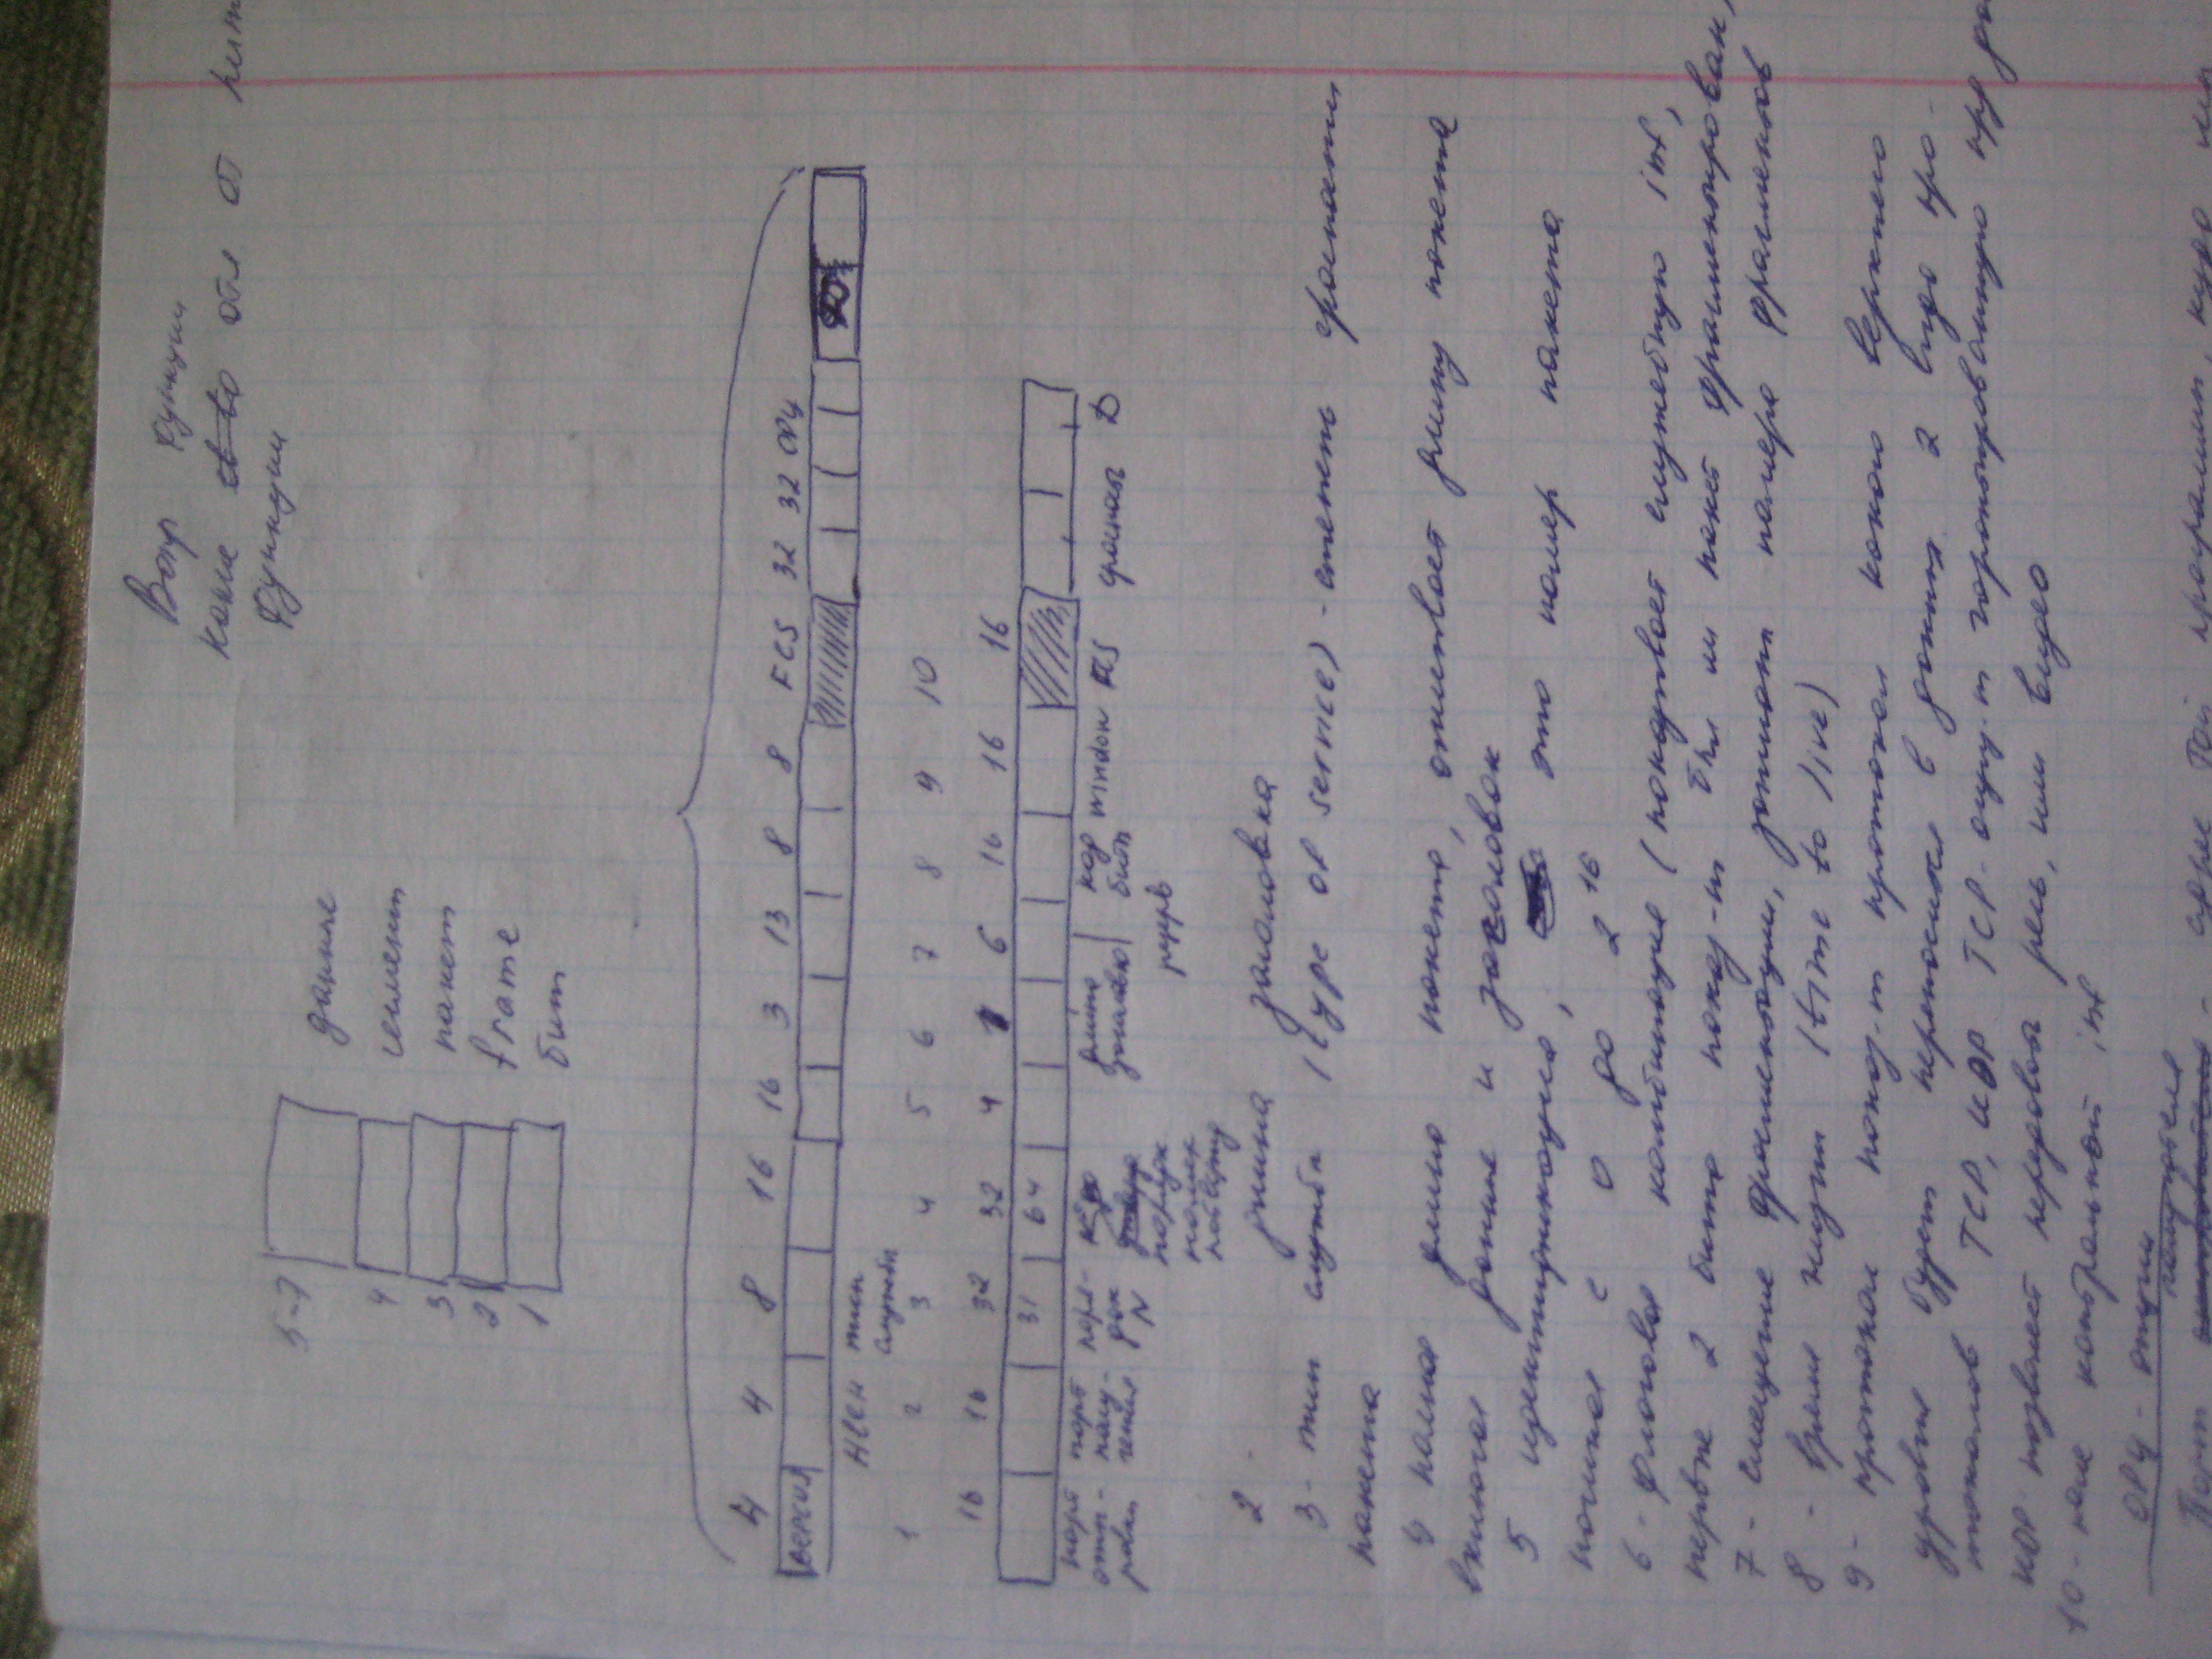 функции
Вопр
какие обл от
функции
5-7 данные
4 сегмент
3 пакет
2 frame
1 бит
4 4 8 16 16 3 13 8 8 FCS 32 32 OP4
версия
HLEH тип
службы
1 2 3 4 5 6 7 8 9 10
16 16 32 32 4 6 16 16 16
31 64
порт порт поря- длина код window FCS
отп- полу- док бит
равл чения N порядок резерв
2 - длина заголовка
3 - тип службы (type of service) - степень срочности
пакета
4 полная длина пакета, описывает длину пакета
включая данные и заголовок
5 идентификация, это номер пакета
начиная с 0 до 2 16
6 - флаговая комбинация (показывает служебную inf,
первые 2 бита показ-т был ли пакет фрагментирован,
7 - смещение фрагментации, значит номера фрагментов
8 - время жизни (time to live)
9 - протокол показ-т протокол какой верхнего
уровня будет переносится в данных. 2 вида про-
токолов TCP, UDP TCP-
UDP позволяет передавать речь, или видео
10 - поле контрольной inf
OP4 - опции
получателя
Порт